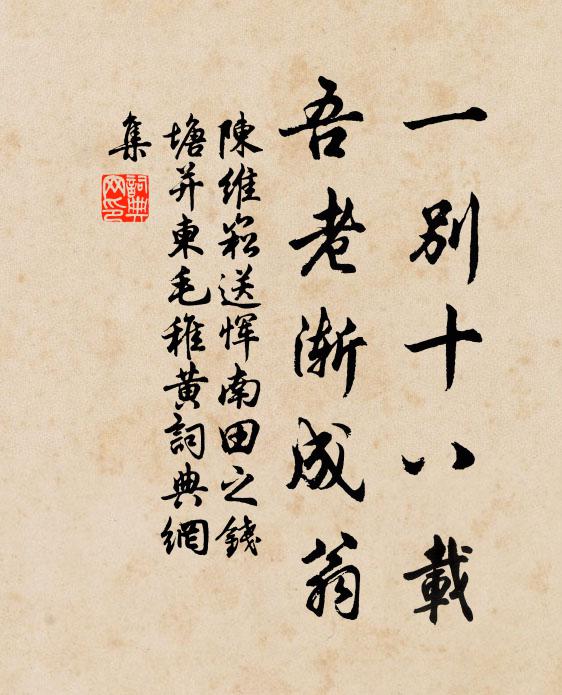 一別十八載
吾老漸成翁
陳維崧送惲南田之錢
塘并柬毛稚黃詞典網
集
詞典
网印